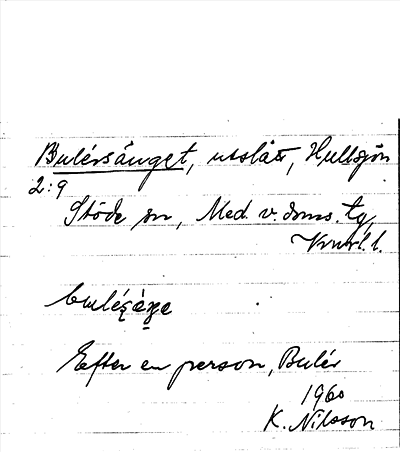 Bulérsänget, utslått, Hullsjön
2:9
Stöde sn, Med. v. doms. tg,
Vnrl. l.
Efter en person, Bulér
1960
K. Nilsson